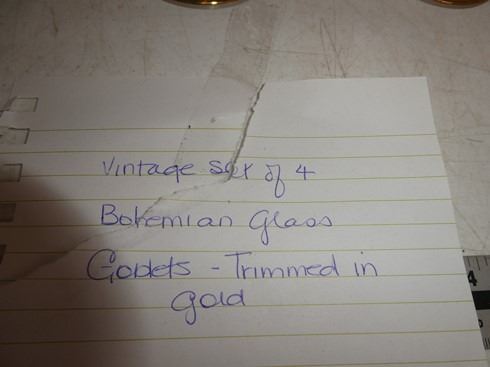 Vintage Set of 4
Bohemian Glass
Goblets - Trimmed in
gold
4